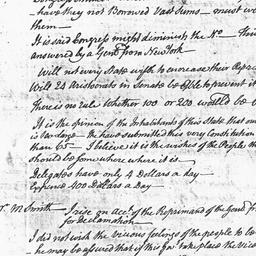 have they not Borrowed Vast Sums — must we
them —
It is said Congress might diminish the No — their
answered by a Gentn from New York
Will not every State wish to increase their Repre
Will 24 Aristocrats in Senate be able to prevent it
There is no rule whether 100 or 200 would be
It is the opinion of the Inhabitants of this State that our
is Undone We have submitted this very Constitution
than 65 — I believe it is the wishes of the People th
should be somewhere where it is —
Delegates have only 4 Dollars a day —
Expence 400 Dollars a Day —
Mr. M Smith — I rise on acct. of the Reprimand of the Gent fr
for Declamation
I did not wish the vicious feelings of the people to be
he may be assured that if this Gt. take place the vice